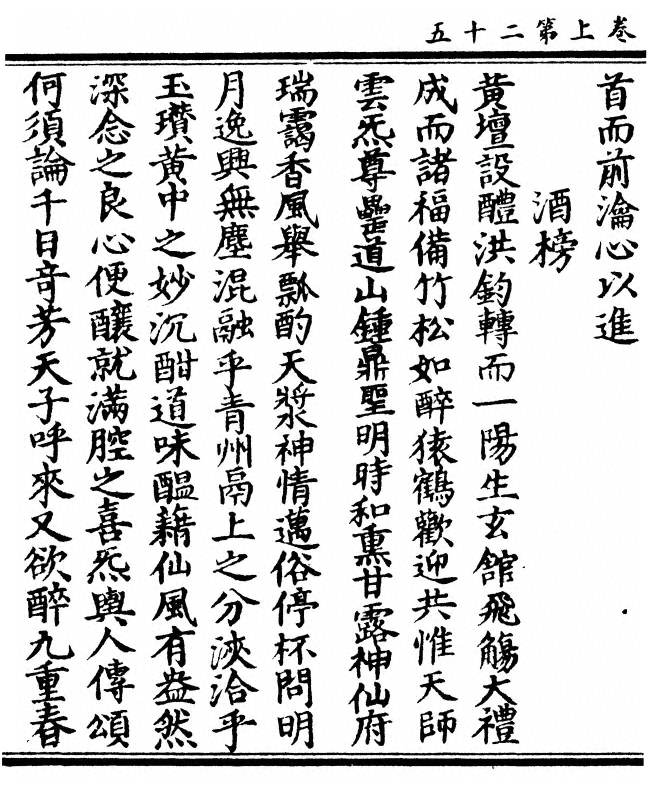 卷上第二十五
首而前瀹心以進
酒榜
黃壇設醴洪鈞轉而一陽生玄館飛觴大禮
成而諸福備竹松如醉猿鶴歡迎共惟天師
雲炁尊罍道山鍾鼎聖明時和熏甘露神仙府
瑞靄香風舉瓢酌天漿神情邁俗停杯問明
月逸興無塵混融乎青州鬲上之分浹洽乎
玉瓚黃中之妙沉酣道味醞藉仙風有盎然
深念之良心便釀就滿腔之喜炁輿人傳頌
何須論千日奇芳天子呼來又欲醉九重春